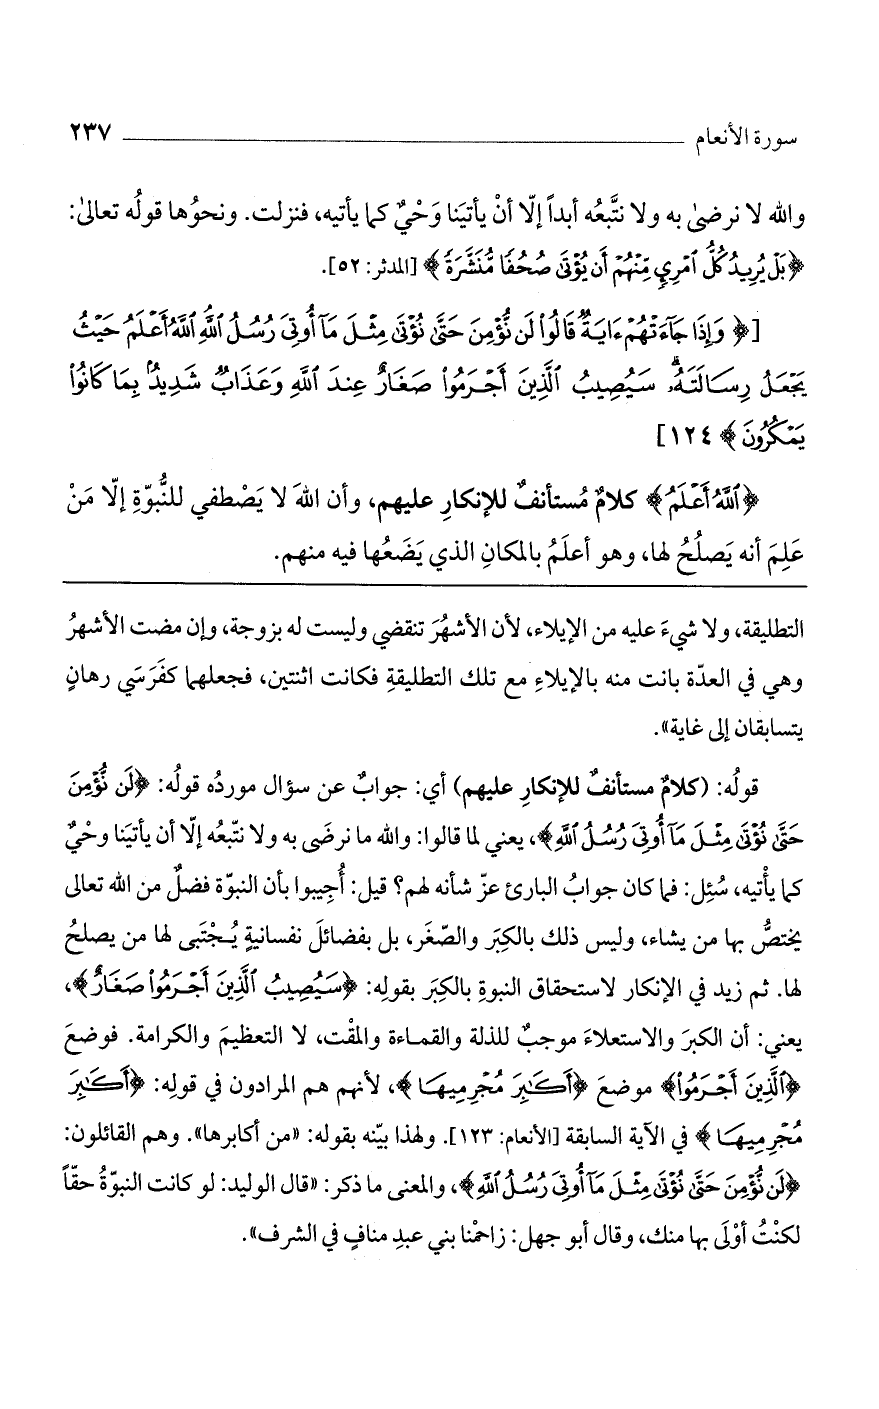 سورة الأنعام ٢٣٧
والله لا نرضىٰ به ولا نتَّبعُه أبداً إلّا أنْ يأتيَنا وَحْيٌ كما يأتيه، فنزلت. ونحوُها قولُه تعالىٰ:
﴿بَلْ يُرِيدُ كُلُّ ٱمْرِئٍ مِّنْهُمْ أَن يُؤْتَىٰ صُحُفًا مُّنَشَّرَةً﴾ [المدثر: ٥٢].
[﴿وَإِذَا جَآءَتْهُمْ ءَايَةٌ قَالُوا۟ لَن نُّؤْمِنَ حَتَّىٰ نُؤْتَىٰ مِثْلَ مَآ أُوتِىَ رُسُلُ ٱللَّهِ ٱللَّهُ أَعْلَمُ حَيْثُ
يَجْعَلُ رِسَالَتَهُۥ سَيُصِيبُ ٱلَّذِينَ أَجْرَمُوا۟ صَغَارٌ عِندَ ٱللَّهِ وَعَذَابٌ شَدِيدٌۢ بِمَا كَانُوا۟
يَمْكُرُونَ﴾ ١٢٤]
﴿ٱللَّهُ أَعْلَمُ﴾ كلامٌ مُستأنفٌ للإنكارِ عليهم، وأن اللهَ لا يَصْطفي للنُّبوّةِ إلّا مَنْ
عَلِمَ أنه يَصلُحُ لها، وهو أعلَمُ بالمكانِ الذي يَضَعُها فيه منهم.
التطليقة، ولا شيءَ عليه من الإيلاء، لأن الأشهُرَ تنقضي وليست له بزوجة، وإن مضت الأشهرُ
وهي في العدّة بانت منه بالإيلاءِ مع تلك التطليقةِ فكانت اثنتين، فجعلهما كفَرَسَي رهانٍ
يتسابقان إلى غاية».
قولُه: (كلامٌ مستأنفٌ للإنكارِ عليهم) أي: جوابٌ عن سؤال موردُه قولُه: ﴿لَن نُّؤْمِنَ
حَتَّىٰ نُؤْتَىٰ مِثْلَ مَآ أُوتِىَ رُسُلُ ٱللَّهِ﴾، يعني لما قالوا: والله ما نرضَى به ولا نتّبعُه إلّا أن يأتيَنا وحْيٌ
كما يأْتيه، سُئِل: فما كان جوابُ البارئ عزّ شأنه لهم؟ قيل: أُجيبوا بأن النبوّة فضلٌ من الله تعالى
يختصُّ بها من يشاء، وليس ذلك بالكِبَر والصّغَر، بل بفضائلَ نفسانيةٍ يُجْتَبى لها من يصلحُ
لها. ثم زيد في الإنكار لاستحقاق النبوةِ بالكِبَر بقولِه: ﴿سَيُصِيبُ ٱلَّذِينَ أَجْرَمُوا۟ صَغَارٌ﴾،
يعني: أن الكبرَ والاستعلاءَ موجبٌ للذلة والقماءة والمقْت، لا التعظيمَ والكرامة. فوضعَ
﴿ٱلَّذِينَ أَجْرَمُوا۟﴾ موضعَ ﴿أَكَـٰبِرَ مُجْرِمِيهَا﴾، لأنهم هم المرادون في قولِه: ﴿أَكَـٰبِرَ
مُجْرِمِيهَا﴾ في الآية السابقة [الأنعام: ١٢٣]. ولهذا بيّنه بقوله: «من أكابرها». وهم القائلون:
﴿لَن نُّؤْمِنَ حَتَّىٰ نُؤْتَىٰ مِثْلَ مَآ أُوتِىَ رُسُلُ ٱللَّهِ﴾، والمعنى ما ذكر: «قال الوليد: لو كانت النبوّةُ حقّاً
لكنْتُ أوْلَى بها منك، وقال أبو جهل: زاحْمنا بني عبدِ منافٍ في الشرف».